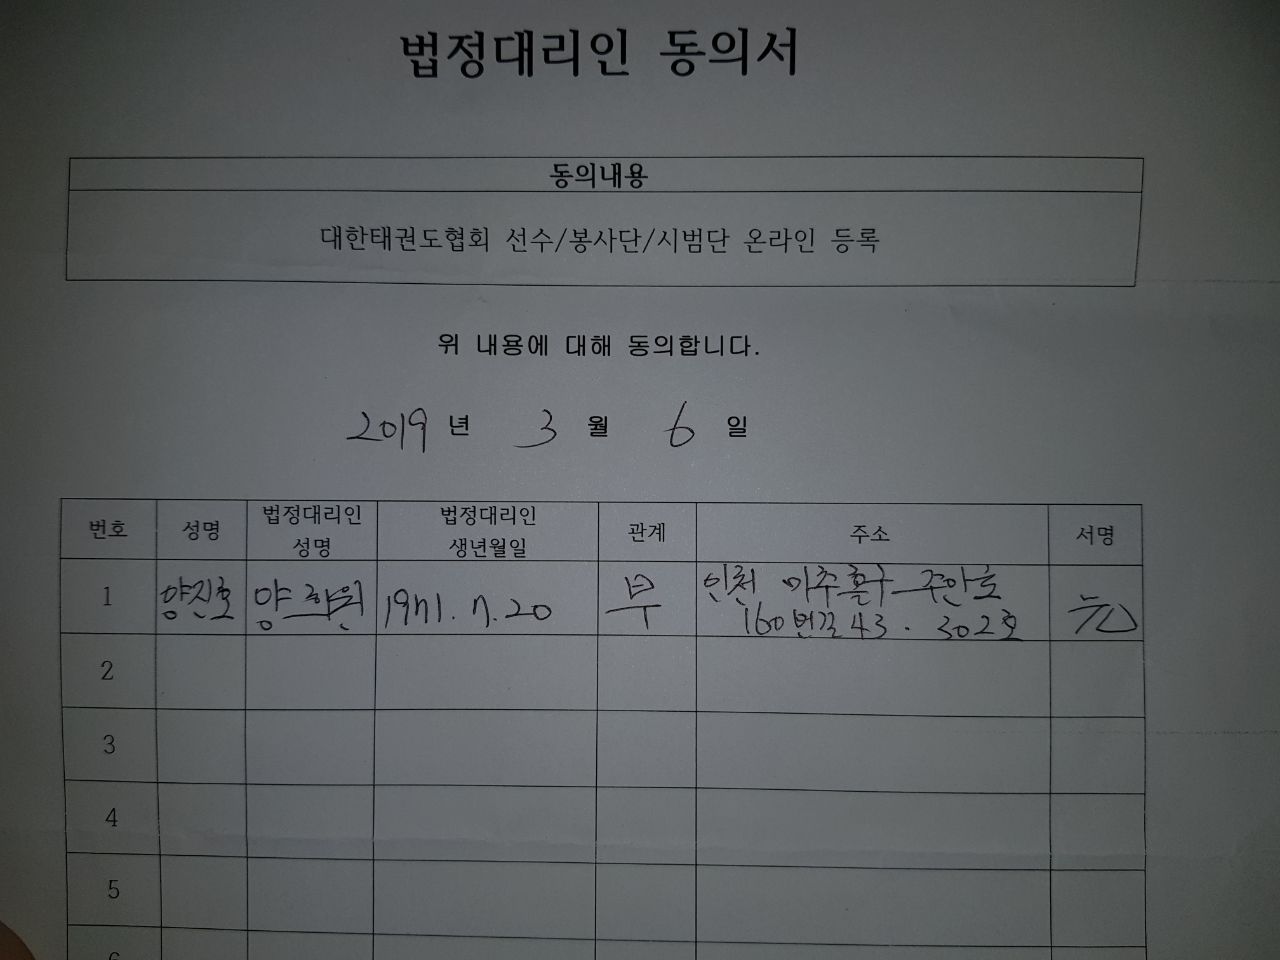 법정대리인 동의서
동의내용
대한태권도협회 선수/봉사단/시범단 온라인 등록
위 내용에 대해 동의합니다.
2019 년 3 월 6 일
번호 성명 법정대리인 성명 법정대리인 생년월일 관계 주소 서명
1 양진호 양학원 1971. 7. 20 부 인천 미추홀구 주안로
160번길 43. 302호
2
3
4
5